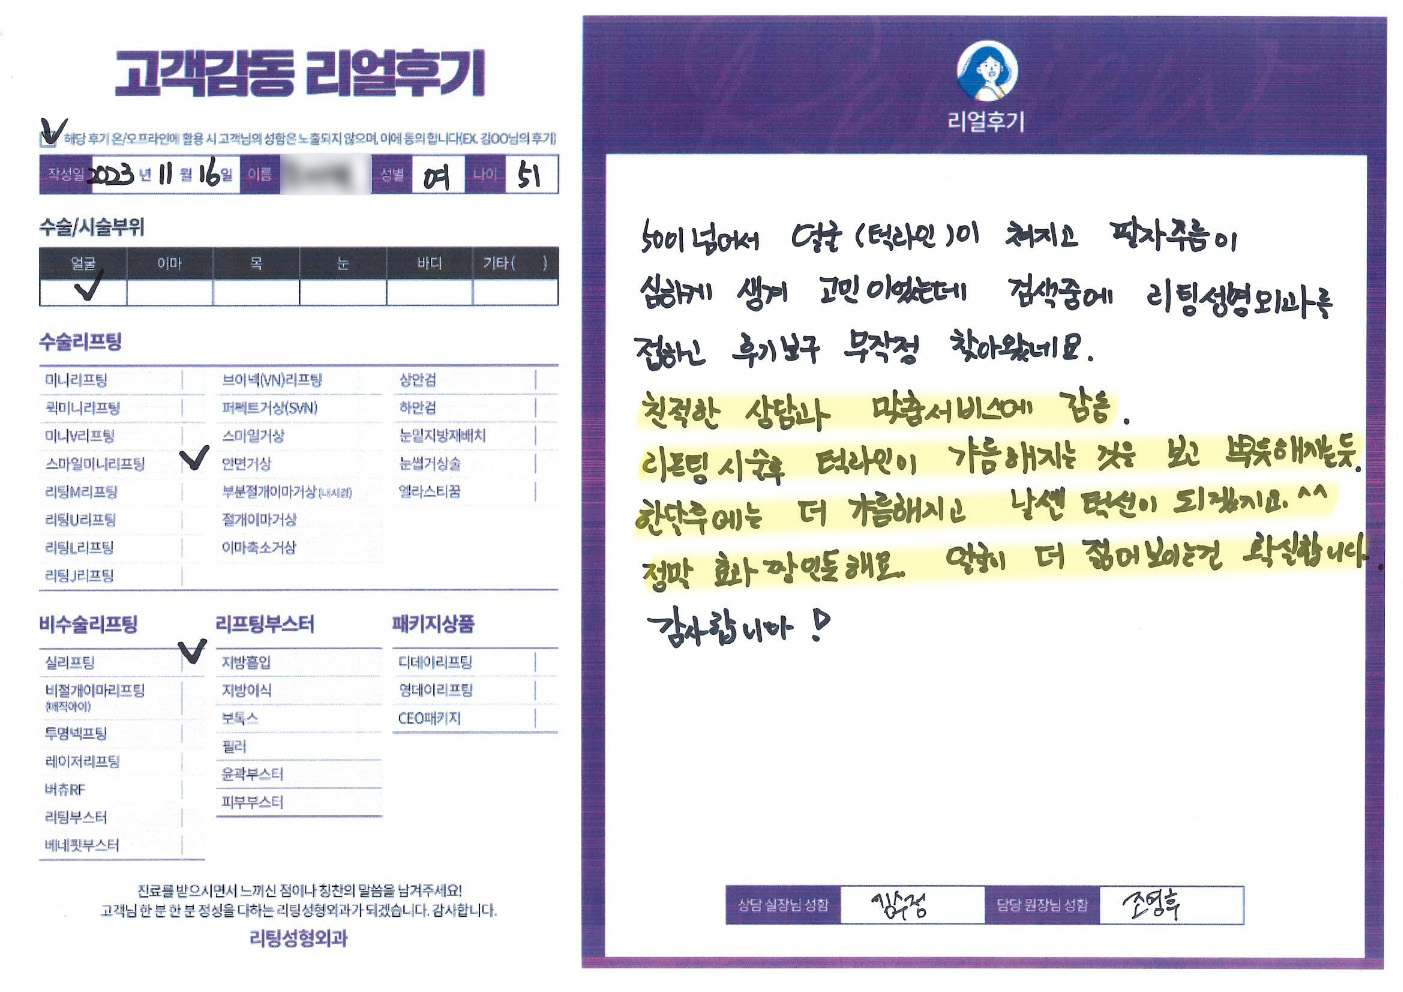 고객감동 리얼후기
해당 후기 온/오프라인에 활용 시 고객님의 성함은 노출되지 않으며, 이에 동의합니다(EX. 김OO님의 후기)
작성일 2023 년 11 월 16 일 이름 성별 여 나이 51
수술/시술부위
얼굴 이마 목 눈 바디 기타( )
수술리프팅
미니리프팅 브이넥(VN)리프팅 상안검
퀵미니리프팅 퍼펙트거상(SVN) 하안검
미니V리프팅 스마일거상 눈밑지방재배치
스마일미니리프팅 안면거상 눈썹거상술
리팅M리프팅 부분절개이마거상(내시경) 엘라스티꿈
리팅U리프팅 절개이마거상
리팅L리프팅 이마축소거상
리팅J리프팅
비수술리프팅 리프팅부스터 패키지상품
실리프팅 지방흡입 디데이리프팅
비절개이마리프팅 지방이식 영데이리프팅
(매직아이) 보톡스 CEO패키지
투명넥프팅 필러
레이저리프팅 윤곽부스터
버츄RF 피부부스터
리팅부스터
베네핏부스터
진료를 받으시면서 느끼신 점이나 칭찬의 말씀을 남겨주세요!
고객님 한 분 한 분 정성을 다하는 리팅성형외과가 되겠습니다. 감사합니다.
리팅성형외과
리얼후기
50이 넘어서 얼굴 (턱라인)이 쳐지고 팔자주름이
심하게 생겨 고민이었는데 검색중에 리팅성형외과를
접하고 후기보구 무작정 찾아왔네요.
친절한 상담과 맞춤서비스에 감동.
리프팅 시술후 턱라인이 갸름해지는 것을 보고 뿌듯해지는듯.
한달후에는 더 갸름해지고 날쎈 턱선이 되겠지요.^^
정막 효과 짱인듯해요. 얼굴이 더 젊어보이는건 확실합니다.
감사합니다!
상담 실장님 성함 김수정 담당 원장님 성함 조영후